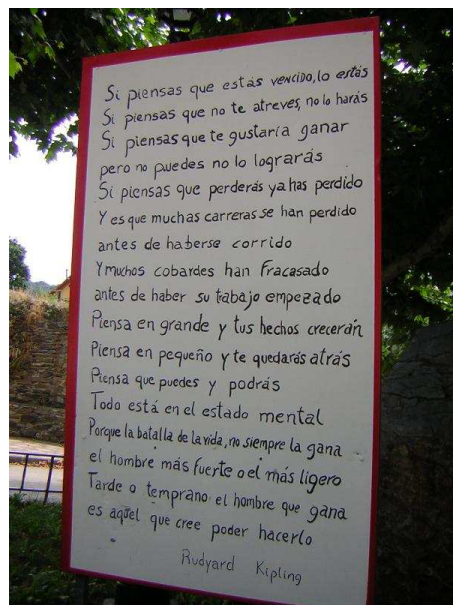 Si piensas que estás vencido, lo estás
Si piensas que no te atreves, no lo harás
Si piensas que te gustaría ganar
pero no puedes no lo lograrás
Si piensas que perderás ya has perdido
Y es que muchas carreras se han perdido
antes de haberse corrido
Y muchos cobardes han fracasado
antes de haber su trabajo empezado
Piensa en grande y tus hechos crecerán
Piensa en pequeño y te quedarás atrás
Piensa que puedes y podrás
Todo está en el estado mental
Porque la batalla de la vida, no siempre la gana
el hombre más fuerte o el más ligero
Tarde o temprano el hombre que gana
es aquel que cree poder hacerlo
Rudyard Kipling